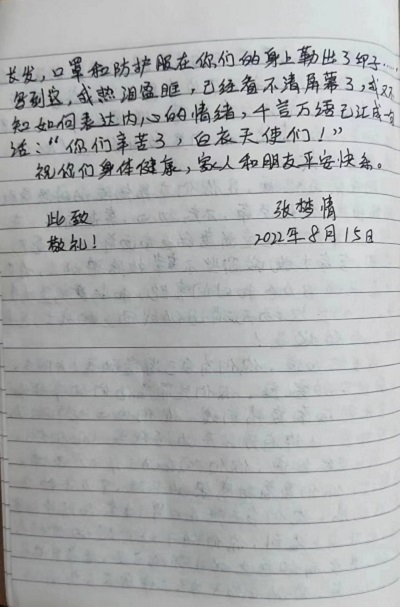 长发，口罩和防护服在你们的身上勒出了印子……
写到这，我热泪盈眶，已经看不清屏幕了，我又不
知如何表达内心的情绪，千言万语已汇成一句
话：“你们辛苦了，白衣天使们！”
祝你们身体健康，家人和朋友平安快乐。
此致 张梦情
敬礼！ 2022年8月15日